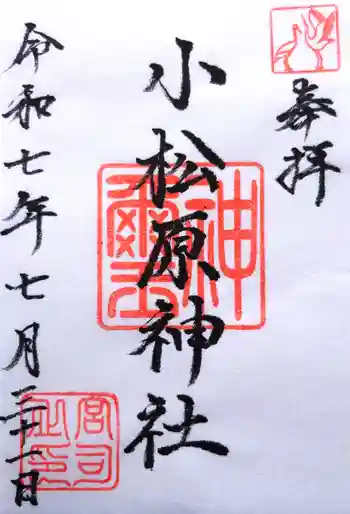 奉拝
小松原神社
令和七年七月三十一日
神璽
宮司之印